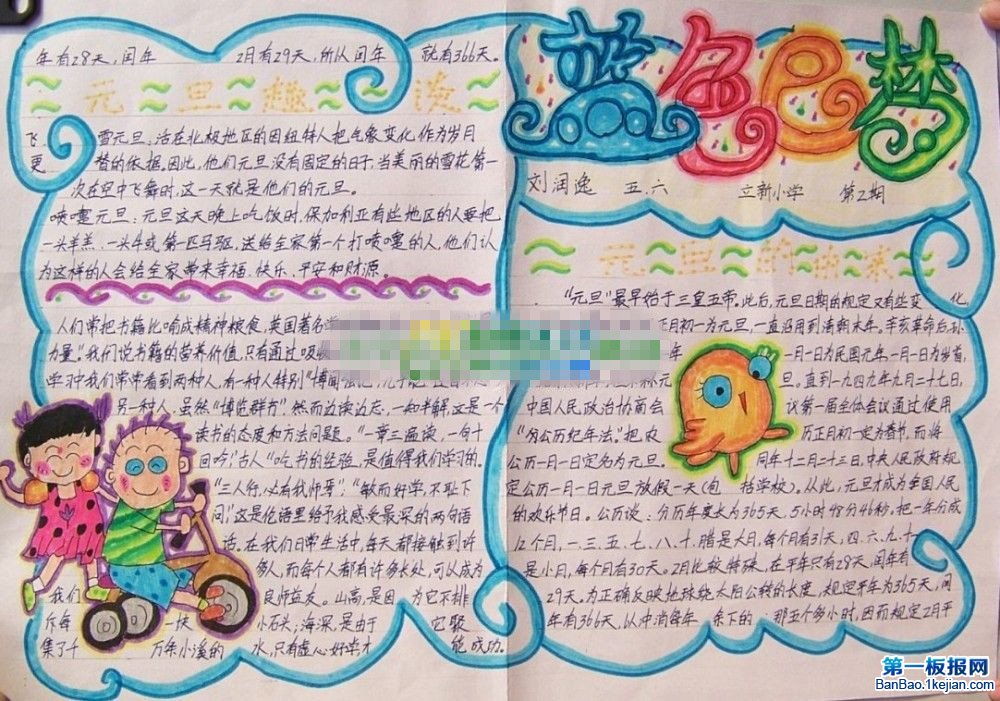 蓝色色梦
刘润逸 五.六 立新小学 第2期
元旦的由来
“元旦”最早始于三皇五帝。此后,元旦日期的规定又有些变化,
正月初一为元旦,一直沿用到清朝末年。辛亥革命后,孙
年 一月一日为民国元年一月一日为岁首,
元 旦。直到一九四九年九月二十七日,
中国人民政治协商会 议第一届全体会议通过使用
“公历纪年法,”把农 历正月初一定为春节,而将
公历一月一日定名为元旦。 同年十二月二十三日,中央人民政府规
定公历一月一日元旦放假一天(包括学校)。从此,元旦才成为全国人民
的欢乐节日。公历谈:分历年度长为365天,5小时48分46秒。把一年分成
12个月,一、三、五、七、八、十、腊是大月,每个月有31天,四、六、九、十一
是小月,每个月有30天。2月比较特殊,在平年只有28天,闰年有
29天。为正确反映地球绕太阳公转的长度,规定平年为365天,闰
年有366天,以冲消每年余下的那五个多小时,因而规定2月平
年有28天,闰年2月有29天,所从闰年就有366天。
元旦趣谈
飞雪元旦:活在北极地区的因纽特人把气象变化作为岁月
更替的依据。因此,他们元旦没有固定的日子,当美丽的雪花第一
次在空中飞舞时,这一天就是他们的元旦。
喷嚏元旦:元旦这天晚上吃饭时,保加利亚有些地区的人要把
一头羊羔、一头牛或第一匹马驱,送给全家第一个打喷嚏的人,他们认
为这样的人会给全家带来幸福、快乐、平安和财源。
人们常把书籍比喻成精神粮食,英国著名
力量”。我们说书籍的营养价值,只有通过吸
学习中我们常常看到两种人,有一种人特别“博闻强记,
另一种人,虽然“博览群书”,然而边读边忘,一知半解,这是一个
读书的态度和方法问题。“一章三遍读,一句十
回吟”,古人“吃书的经验,是值得我们学习的。
“三人行,必有我师焉”;“敏而好学,不耻下
问”,这是伦语里给予我感受最深的两句语
话。在我们日常生活中,每天都接触到许
多人,而每个人都有许多长处,可以成为
我们良师益友。山高,是因为它不排
斥每一块小石头;海深,是由于它聚
集了千万条小溪的水,只有虚心好学,才能成功。
第一板报网
BanBao.1kejian.com